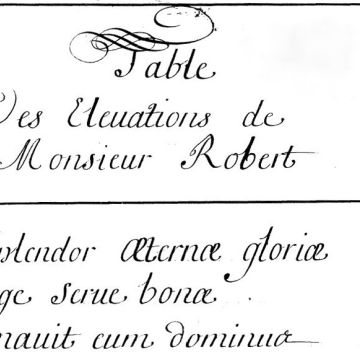 Table
Des Eleuations de
Monsieur Robert
splendor Æternæ gloriæ
ge serue bonæ
nauit eum dominus